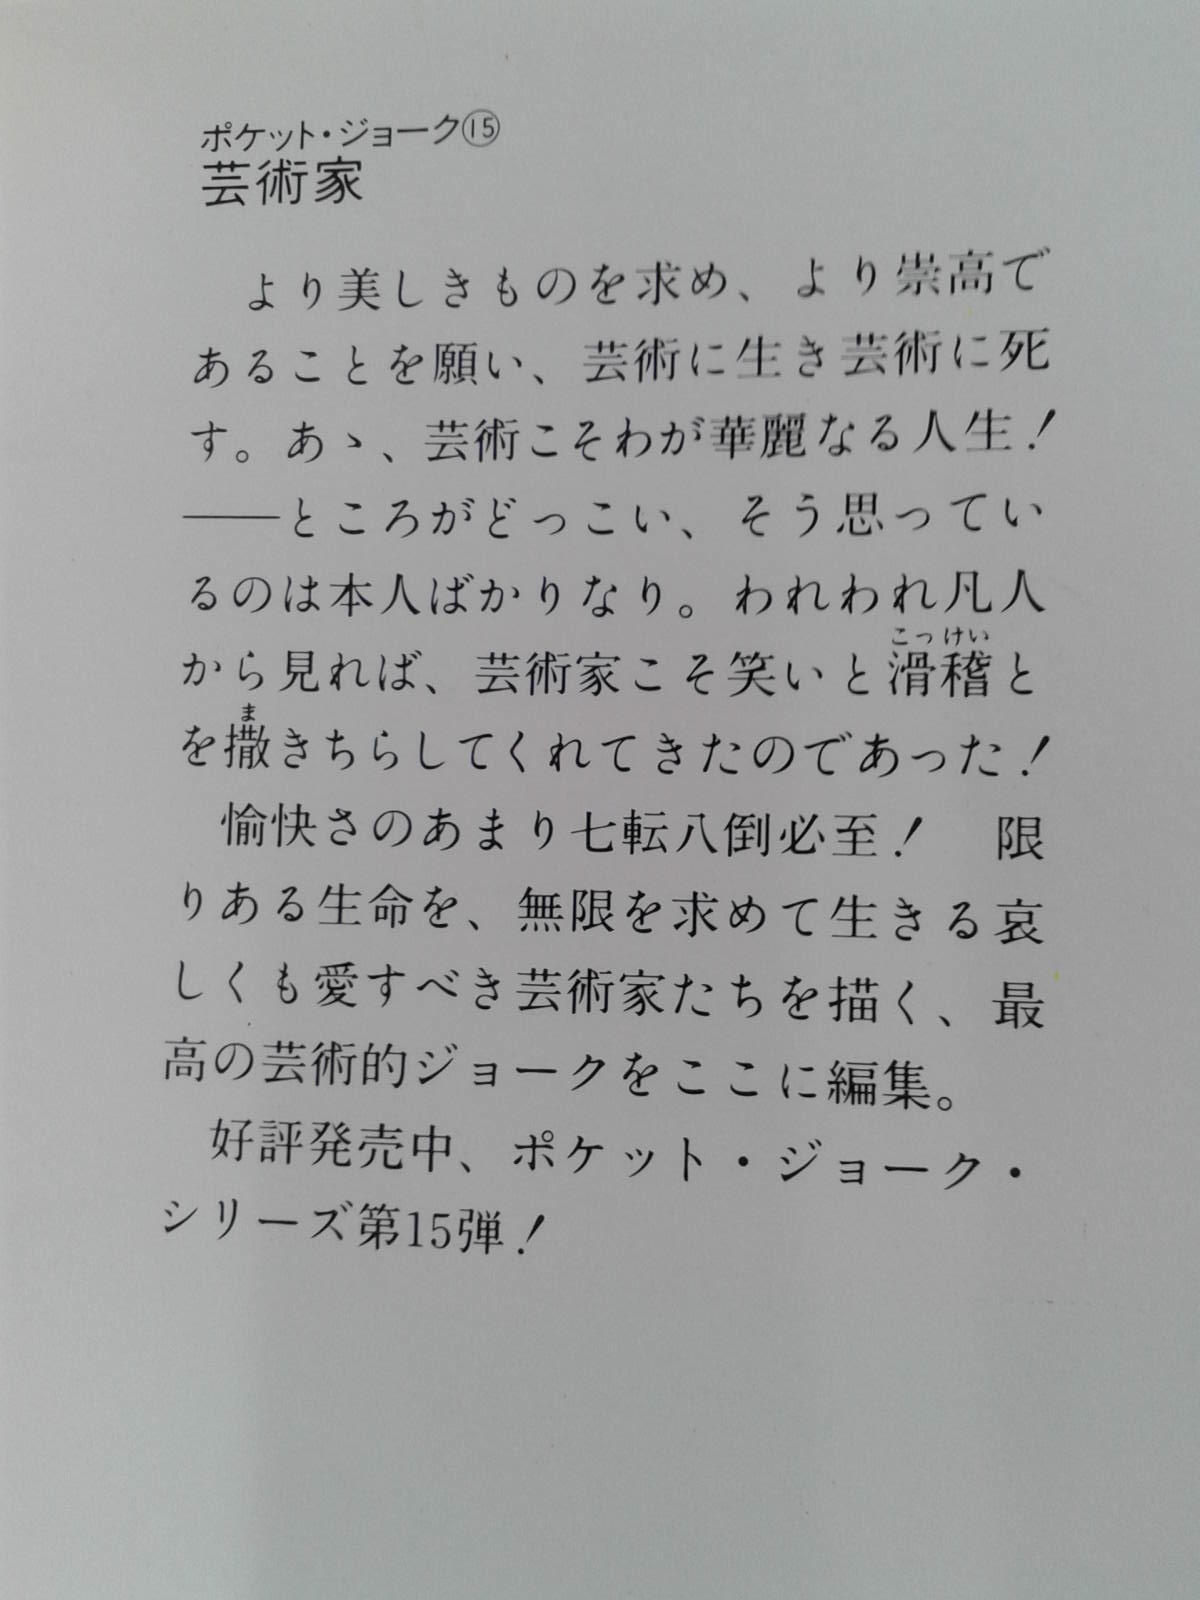 ポケット・ジョーク⑮
芸術家
より美しきものを求め、より崇高で
あることを願い、芸術に生き芸術に死
す。あゝ、芸術こそわが華麗なる人生！
――ところがどっこい、そう思ってい
るのは本人ばかりなり。われわれ凡人
こっけい
から見れば、芸術家こそ笑いと滑稽と
ま
を撒きちらしてくれてきたのであった！
愉快さのあまり七転八倒必至！　限
りある生命を、無限を求めて生きる哀
しくも愛すべき芸術家たちを描く、最
高の芸術的ジョークをここに編集。
好評発売中、ポケット・ジョーク・
シリーズ第15弾！